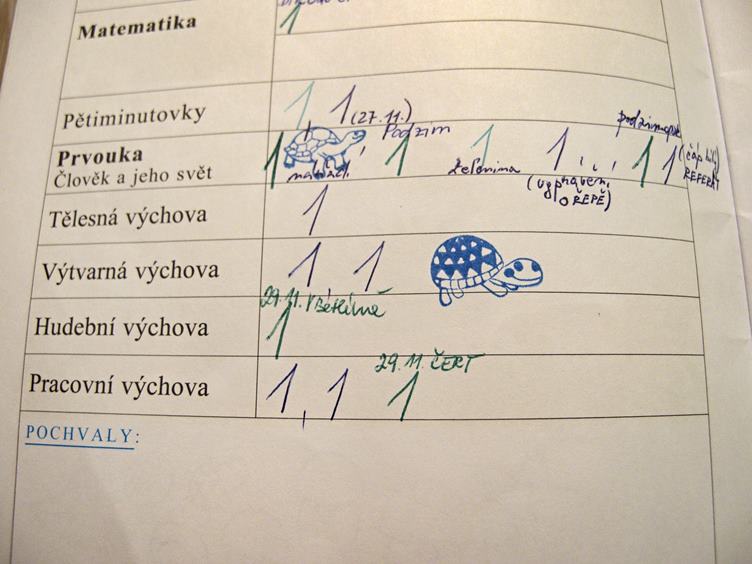 Matematika
1
Pětiminutovky
1 1 (27.11.)
Prvouka
Člověk a jeho svět
1
1 Podzim
1 zelenina
1 (vyprávění
O ŘEPĚ)
1
1 (čáp bílý
REFERÁT
Tělesná výchova
1
Výtvarná výchova
1 1
29.11. V Betlémě
Hudební výchova
1
Pracovní výchova
1 1
29.11. ČERT
1
POCHVALY: